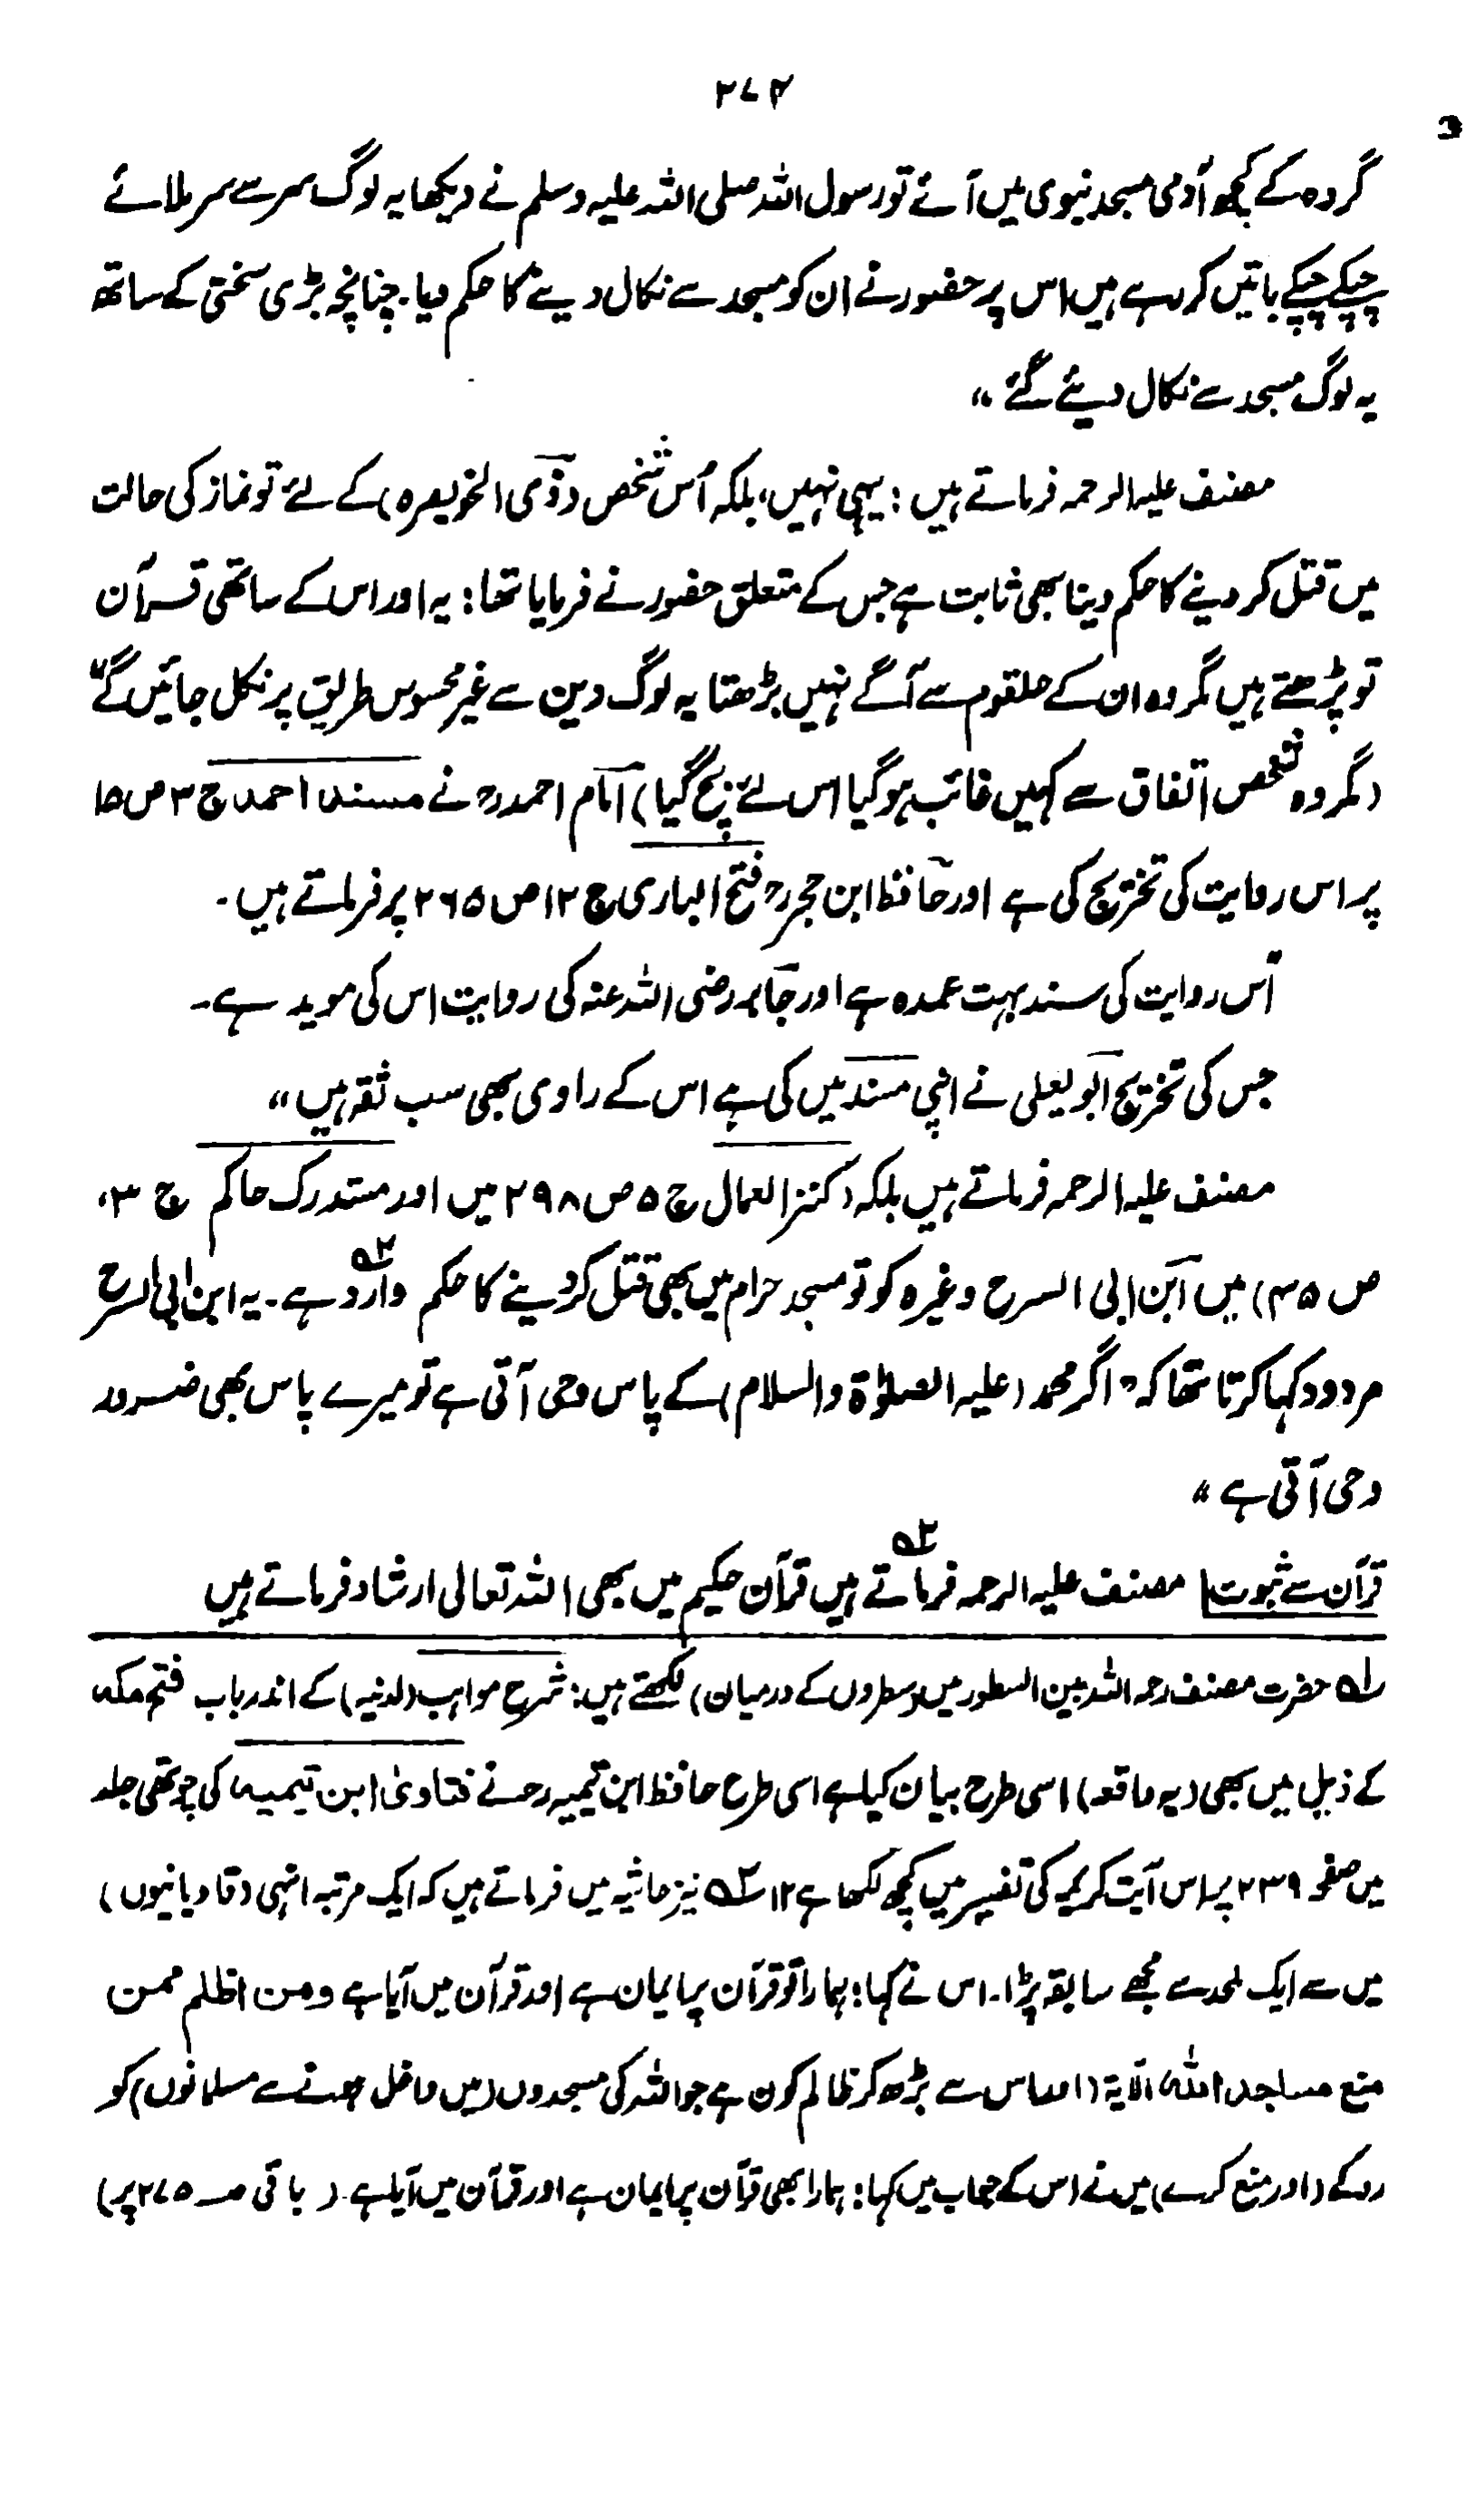 ۲۷۴
گروہ کے کچھ آدمی مسجد نبوی میں آئے تو رسول اللہ صلی اللہ علیہ وسلم نے دیکھا یہ لوگ سر سے سر ملائے
چپکے چپکے باتیں کر رہے ہیں اس پر حضور نے ان کو مسجد سے نکال دینے کا حکم دیا۔ چنانچہ بڑی سختی کے ساتھ
یہ لوگ مسجد سے نکال دیئے گئے ،،
مصنف علیہ الرحمہ فرماتے ہیں : یہی نہیں، بلکہ اُس شخص (ذی الخویصرہ) کے لئے تو نماز کی حالت
میں قتل کر دینے کا حکم دینا بھی ثابت ہے جس کے متعلق حضور نے فرمایا تھا: یہ اور اس کے ساتھی قرآن
تو پڑھتے ہیں مگر وہ ان کے حلقوم سے آگے نہیں بڑھتا یہ لوگ دین سے غیر محسوس طریق پر نکل جائیں گے"
(مگر وہ شخص اتفاق سے کہیں غائب ہو گیا اس لئے بچ گیا) امام احمدؒ نے مسند احمد ج ۳ ص ۱۵
پر اس روایت کی تخریج کی ہے اور حافظ ابن حجرؒ فتح الباری ج ۱۲ ص ۲۶۵ پر فرماتے ہیں۔
اس روایت کی سند بہت عمدہ ہے اور جابر رضی اللہ عنہ کی روایت اس کی موید ہے۔
جس کی تخریج ابو یعلی نے اپنی مسند میں کی ہے اس کے راوی بھی سب ثقہ ہیں ،،
مصنف علیہ الرحمہ فرماتے ہیں بلکہ (کنز العمال ج ۵ ص ۲۹۸ میں اور مستدرک حاکم ج ۳،
ص ۴۵) میں ابن ابی السرح وغیرہ کو تو مسجد حرام میں بھی قتل کر دینے کا حکم وارد ہے۔ یہ ابن ابی السرح
مردود کہا کرتا تھا کہ " اگر محمد (علیہ الصلوٰۃ والسلام) کے پاس وحی آتی ہے تو میرے پاس بھی ضرور
وحی آتی ہے "
قرآن سے ثبوت مصنف علیہ الرحمہ فرماتے ہیں قرآن حکیم میں بھی اللہ تعالی ارشاد فرماتے ہیں
لہ حضرت مصنف رحمہ اللہ بین السطور میں (سطروں کے درمیان) لکھتے ہیں: شرح مواہب (لدنیہ) کے اندر باب فتح مکہ
کے ذیل میں بھی (یہ واقعہ) اسی طرح بیان کیا ہے اسی طرح حافظ ابن تیمیہ رح نے فتاویٰ ابن تیمیہ کی چوتھی جلد
میں صفحہ ۲۳۹ پر اس آیت کریمہ کی تفسیر میں کچھ لکھا ہے ۱۲ ۲ہ نیز حاشیہ میں فرماتے ہیں کہ ایک مرتبہ انہی (قادیانیوں)
میں سے ایک ملحد سے مجھے سابقہ پڑا۔ اس نے کہا: ہمارا تو قرآن پر ایمان ہے اور قرآن میں آیا ہے ومن اظلم ممن
منع مساجد اللہ، الآیۃ (اور اس سے بڑھ کر ظالم کون ہے جو اللہ کی مسجدوں (میں داخل ہونے سے مسلمانوں) کو
روکے (اور منع کرے) میں نے اس کے جواب میں کہا: ہمارا بھی قرآن پر ایمان ہے اور قرآن میں آیا ہے۔ ( باقی صـ ۲۷۵ پر)